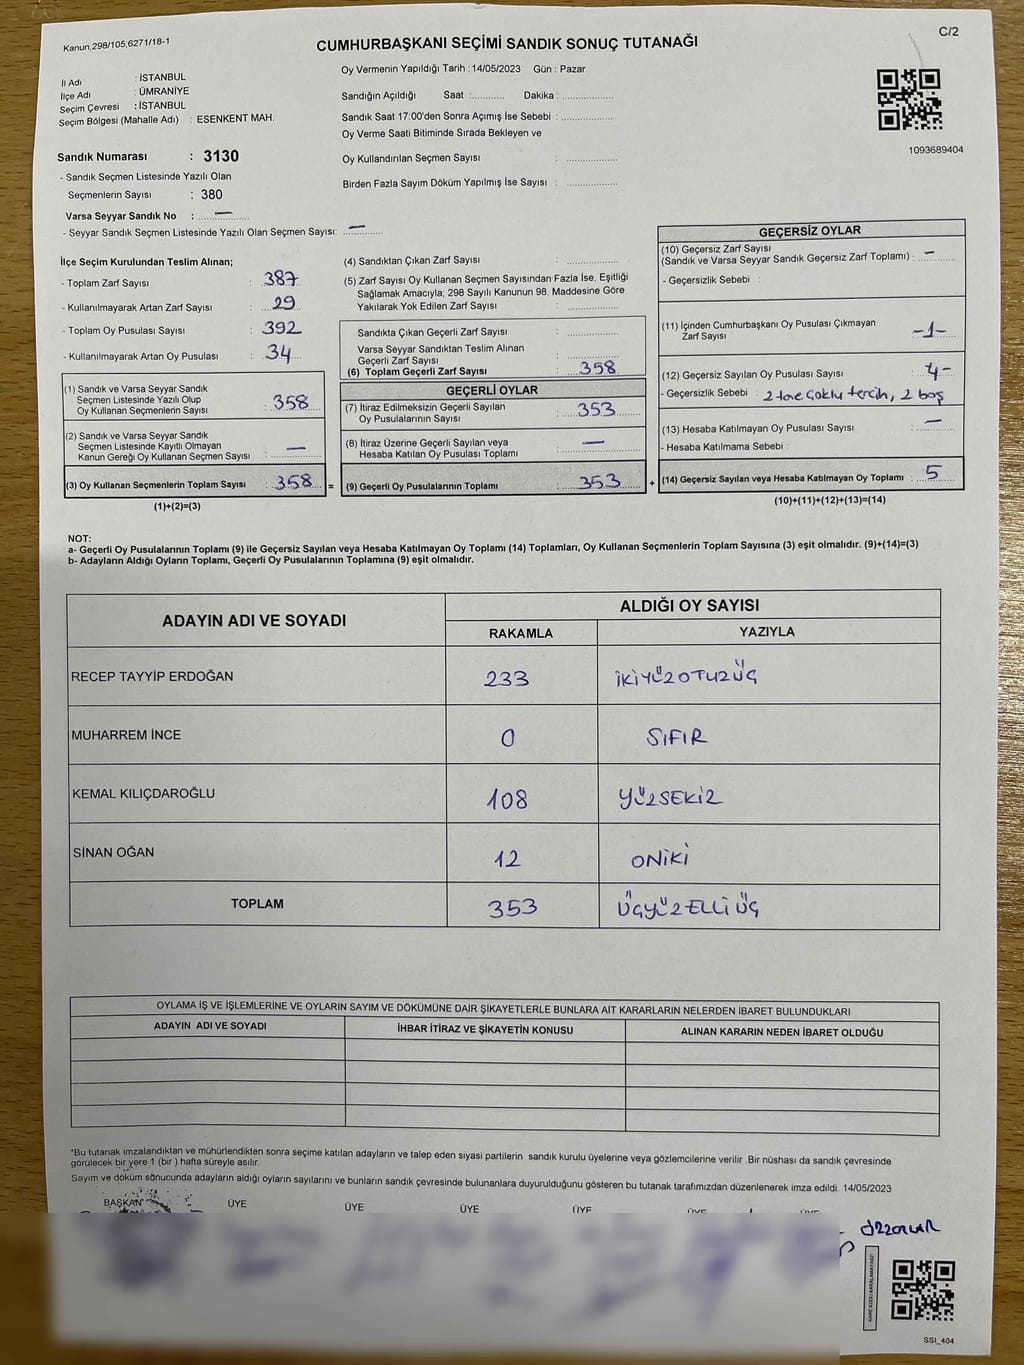 Kanun;298/105;6271/18-1
C/2
CUMHURBAŞKANI SEÇİMİ SANDIK SONUÇ TUTANAĞI
Oy Vermenin Yapıldığı Tarih :14/05/2023 Gün : Pazar
İl Adı : İSTANBUL
İlçe Adı : ÜMRANİYE
Seçim Çevresi : İSTANBUL
Seçim Bölgesi (Mahalle Adı) : ESENKENT MAH.
Sandığın Açıldığı Saat :........... Dakika : ................
Sandık Saat 17:00'den Sonra Açımış İse Sebebi : ................
Oy Verme Saati Bitiminde Sırada Bekleyen ve
Oy Kullandırılan Seçmen Sayısı : ................
Birden Fazla Sayım Döküm Yapılmış İse Sayısı : ................
1093689404
Sandık Numarası : 3130
- Sandık Seçmen Listesinde Yazılı Olan
Seçmenlerin Sayısı : 380
Varsa Seyyar Sandık No : —
- Seyyar Sandık Seçmen Listesinde Yazılı Olan Seçmen Sayısı: —
İlçe Seçim Kurulundan Teslim Alınan;
- Toplam Zarf Sayısı : 387
- Kullanılmayarak Artan Zarf Sayısı : 29
- Toplam Oy Pusulası Sayısı : 392
- Kullanılmayarak Artan Oy Pusulası : 34
(1) Sandık ve Varsa Seyyar Sandık
Seçmen Listesinde Yazılı Olup
Oy Kullanan Seçmenlerin Sayısı : 358
(2) Sandık ve Varsa Seyyar Sandık
Seçmen Listesinde Kayıtlı Olmayan
Kanun Gereği Oy Kullanan Seçmen Sayısı : —
(3) Oy Kullanan Seçmenlerin Toplam Sayısı : 358 =
(1)+(2)=(3)
(4) Sandıktan Çıkan Zarf Sayısı : ................
(5) Zarf Sayısı Oy Kullanan Seçmen Sayısından Fazla İse, Eşitliği
Sağlamak Amacıyla; 298 Sayılı Kanunun 98. Maddesine Göre
Yakılarak Yok Edilen Zarf Sayısı : ................
Sandıkta Çıkan Geçerli Zarf Sayısı : ................
Varsa Seyyar Sandıktan Teslim Alınan
Geçerli Zarf Sayısı : ................
(6) Toplam Geçerli Zarf Sayısı : 358
GEÇERLİ OYLAR
(7) İtiraz Edilmeksizin Geçerli Sayılan
Oy Pusulalarının Sayısı : 353
(8) İtiraz Üzerine Geçerli Sayılan veya
Hesaba Katılan Oy Pusulası Toplamı : —
(9) Geçerli Oy Pusulalarının Toplamı : 353 +
GEÇERSİZ OYLAR
(10) Geçersiz Zarf Sayısı
(Sandık ve Varsa Seyyar Sandık Geçersiz Zarf Toplamı) : —
- Geçersizlik Sebebi :
(11) İçinden Cumhurbaşkanı Oy Pusulası Çıkmayan
Zarf Sayısı -1-
(12) Geçersiz Sayılan Oy Pusulası Sayısı : 4-
- Geçersizlik Sebebi : 2 tane çoklu tercih, 2 boş
(13) Hesaba Katılmayan Oy Pusulası Sayısı : —
- Hesaba Katılmama Sebebi :
(14) Geçersiz Sayılan veya Hesaba Katılmayan Oy Toplamı : 5
(10)+(11)+(12)+(13)=(14)
NOT:
a- Geçerli Oy Pusulalarının Toplamı (9) ile Geçersiz Sayılan veya Hesaba Katılmayan Oy Toplamı (14) Toplamları, Oy Kullanan Seçmenlerin Toplam Sayısına (3) eşit olmalıdır. (9)+(14)=(3)
b- Adayların Aldığı Oyların Toplamı, Geçerli Oy Pusulalarının Toplamına (9) eşit olmalıdır.
ADAYIN ADI VE SOYADI
ALDIĞI OY SAYISI
RAKAMLA YAZIYLA
RECEP TAYYİP ERDOĞAN 233 İKİYÜZOTUZÜÇ
MUHARREM İNCE 0 SIFIR
KEMAL KILIÇDAROĞLU 108 YÜZSEKİZ
SİNAN OĞAN 12 ONİKİ
TOPLAM 353 ÜÇYÜZELLİÜÇ
OYLAMA İŞ VE İŞLEMLERİNE VE OYLARIN SAYIM VE DÖKÜMÜNE DAİR ŞİKAYETLERLE BUNLARA AİT KARARLARIN NELERDEN İBARET BULUNDUKLARI
ADAYIN ADI VE SOYADI İHBAR İTİRAZ VE ŞİKAYETİN KONUSU ALINAN KARARIN NEDEN İBARET OLDUĞU
*Bu tutanak imzalandıktan ve mühürlendikten sonra seçime katılan adayların ve talep eden siyasi partilerin sandık kurulu üyelerine veya gözlemcilerine verilir .Bir nüshası da sandık çevresinde
görülecek bir yere 1 (bir ) hafta süreyle asılır.
Sayım ve döküm sonucunda adayların aldığı oyların sayılarını ve bunların sandık çevresinde bulunanlara duyurulduğunu gösteren bu tutanak tarafımızdan düzenlenerek imza edildi. 14/05/2023
BAŞKAN ÜYE ÜYE ÜYE ÜYE ÜYE ÜYE
KARE KODU KARALAMAYINIZ!
SSI_404